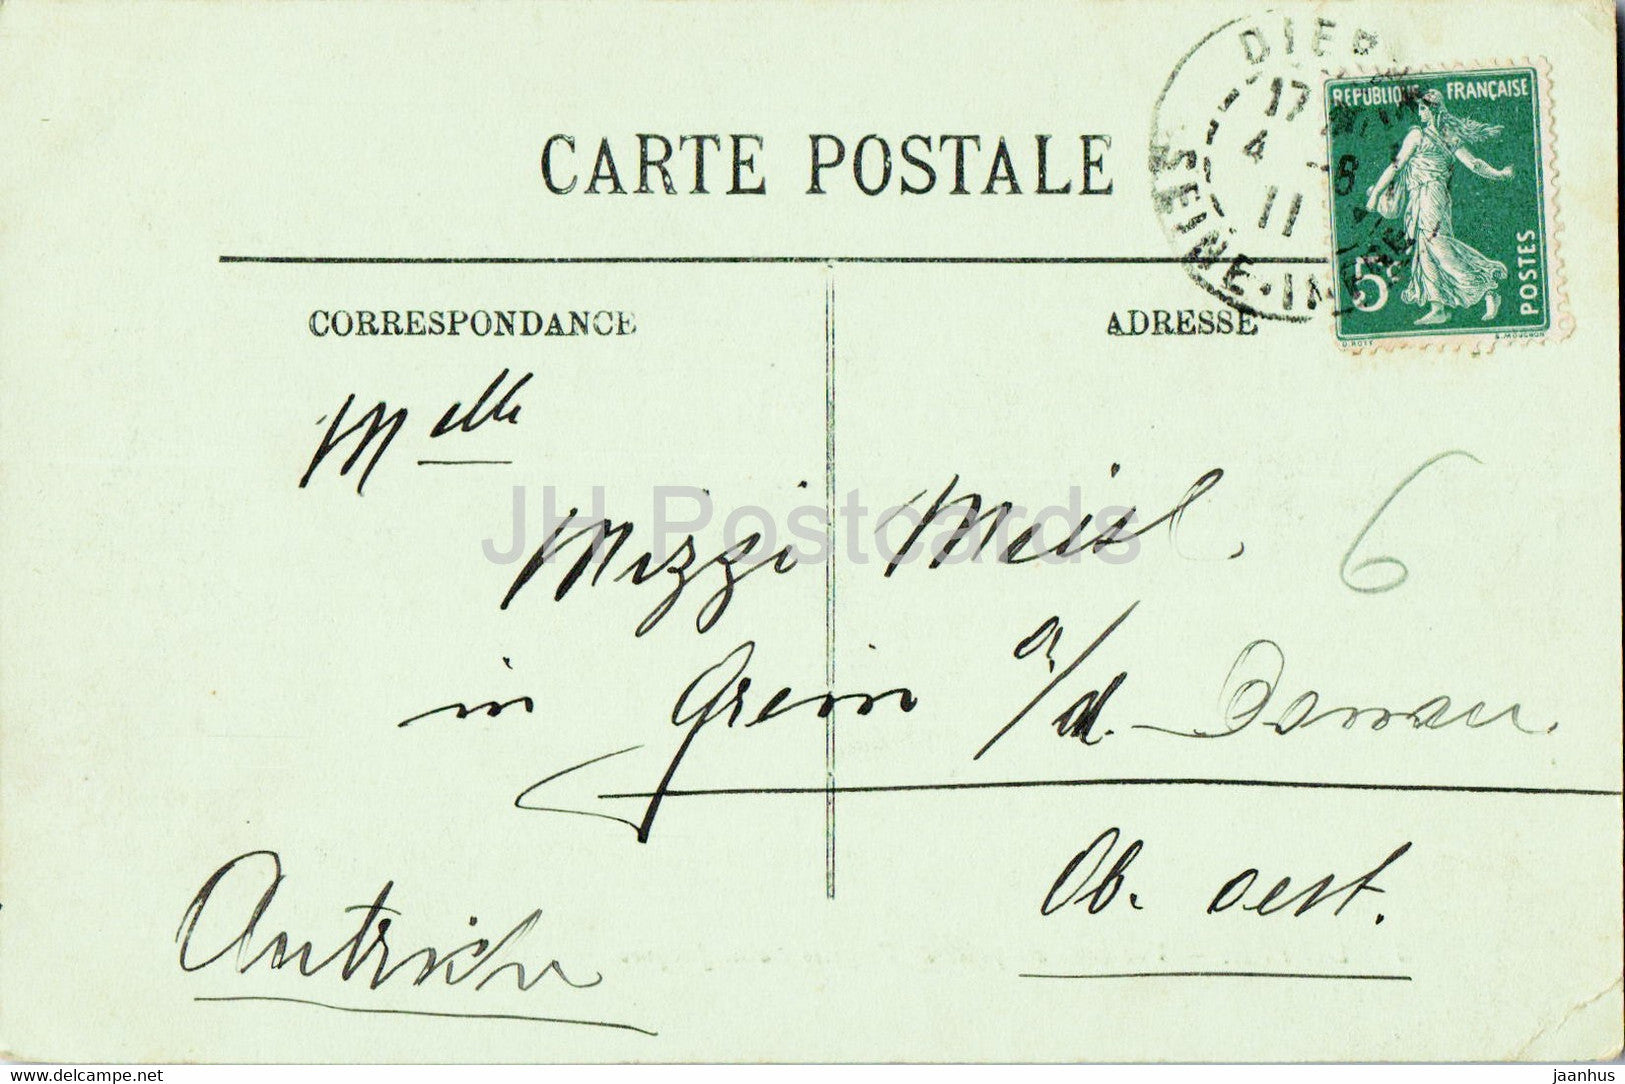 CARTE POSTALE
DIEP
17
4 -8
11
SEINE-INFRE
REPUBLIQUE FRANÇAISE
5c
POSTES
O. ROTY
E. MOUCHON
CORRESPONDANCE
ADRESSE
Melle
Mizzi Meisl.
6
in Grein a/d. Donau.
Ob. oest.
Autriche
JH Postcards
delcampe.net
jaanhus